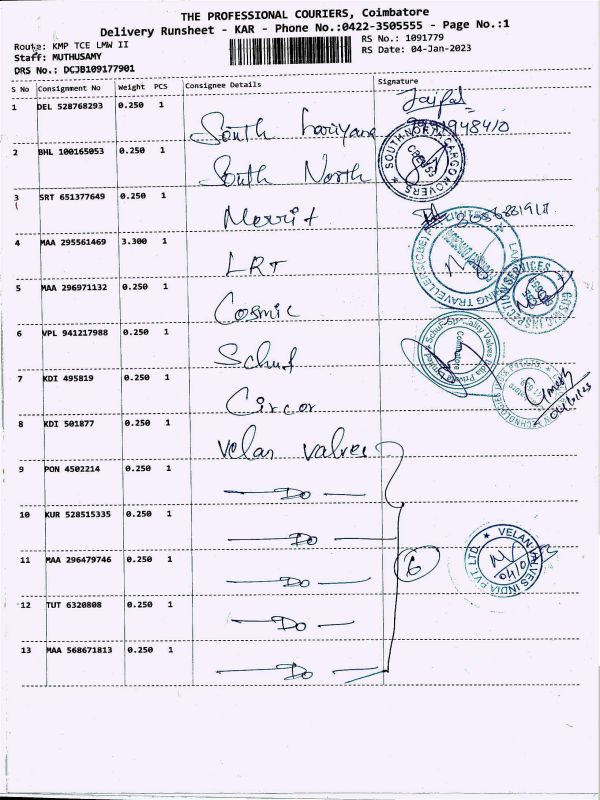 THE PROFESSIONAL COURIERS, Coimbatore
Delivery Runsheet - KAR - Phone No.:0422-3505555 - Page No.:1
Route: KMP TCE LMW II
RS No.: 1091779
Staff: MUTHUSAMY
RS Date: 04-Jan-2023
DRS No.: DCJB109177901
S No Consignment No Weight PCS Consignee Details Signature
1 DEL 528768293 0.250 1 South hariyana Jaipal
2 BHL 100165053 0.250 1 South North SOUTH NORTH CARGO MOVERS
3 SRT 651377649 0.250 1 Merrit
4 MAA 295561469 3.300 1 LRT
5 MAA 296971132 0.250 1 Cosmic COSMIC INSPECTION SERVICES
6 VPL 941217988 0.250 1 Schuf Coimbatore
7 KDI 495819 0.250 1 Circor
8 KDI 501877 0.250 1 Velan valves
9 PON 4502214 0.250 1 Do
10 KUR 528515335 0.250 1 Do
11 MAA 296479746 0.250 1 Do 6 VELAN VALVES INDIA PVT LTD
12 TUT 6320808 0.250 1 Do
13 MAA 568671813 0.250 1 Do